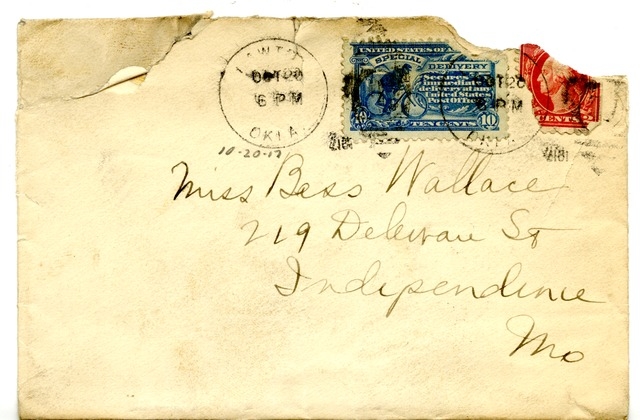 LAWTON
OCT 20
6 PM
OKLA.
UNITED STATES OF A
SPECIAL DELIVERY
Secures
immediate
delivery at any
United States
Post Office
10 TEN CENTS 10
OCT 20
6 PM
OKLA
CENTS 2
1917
1917
10-20-17
Miss Bess Wallace
219 Deleware St
Independence
Mo